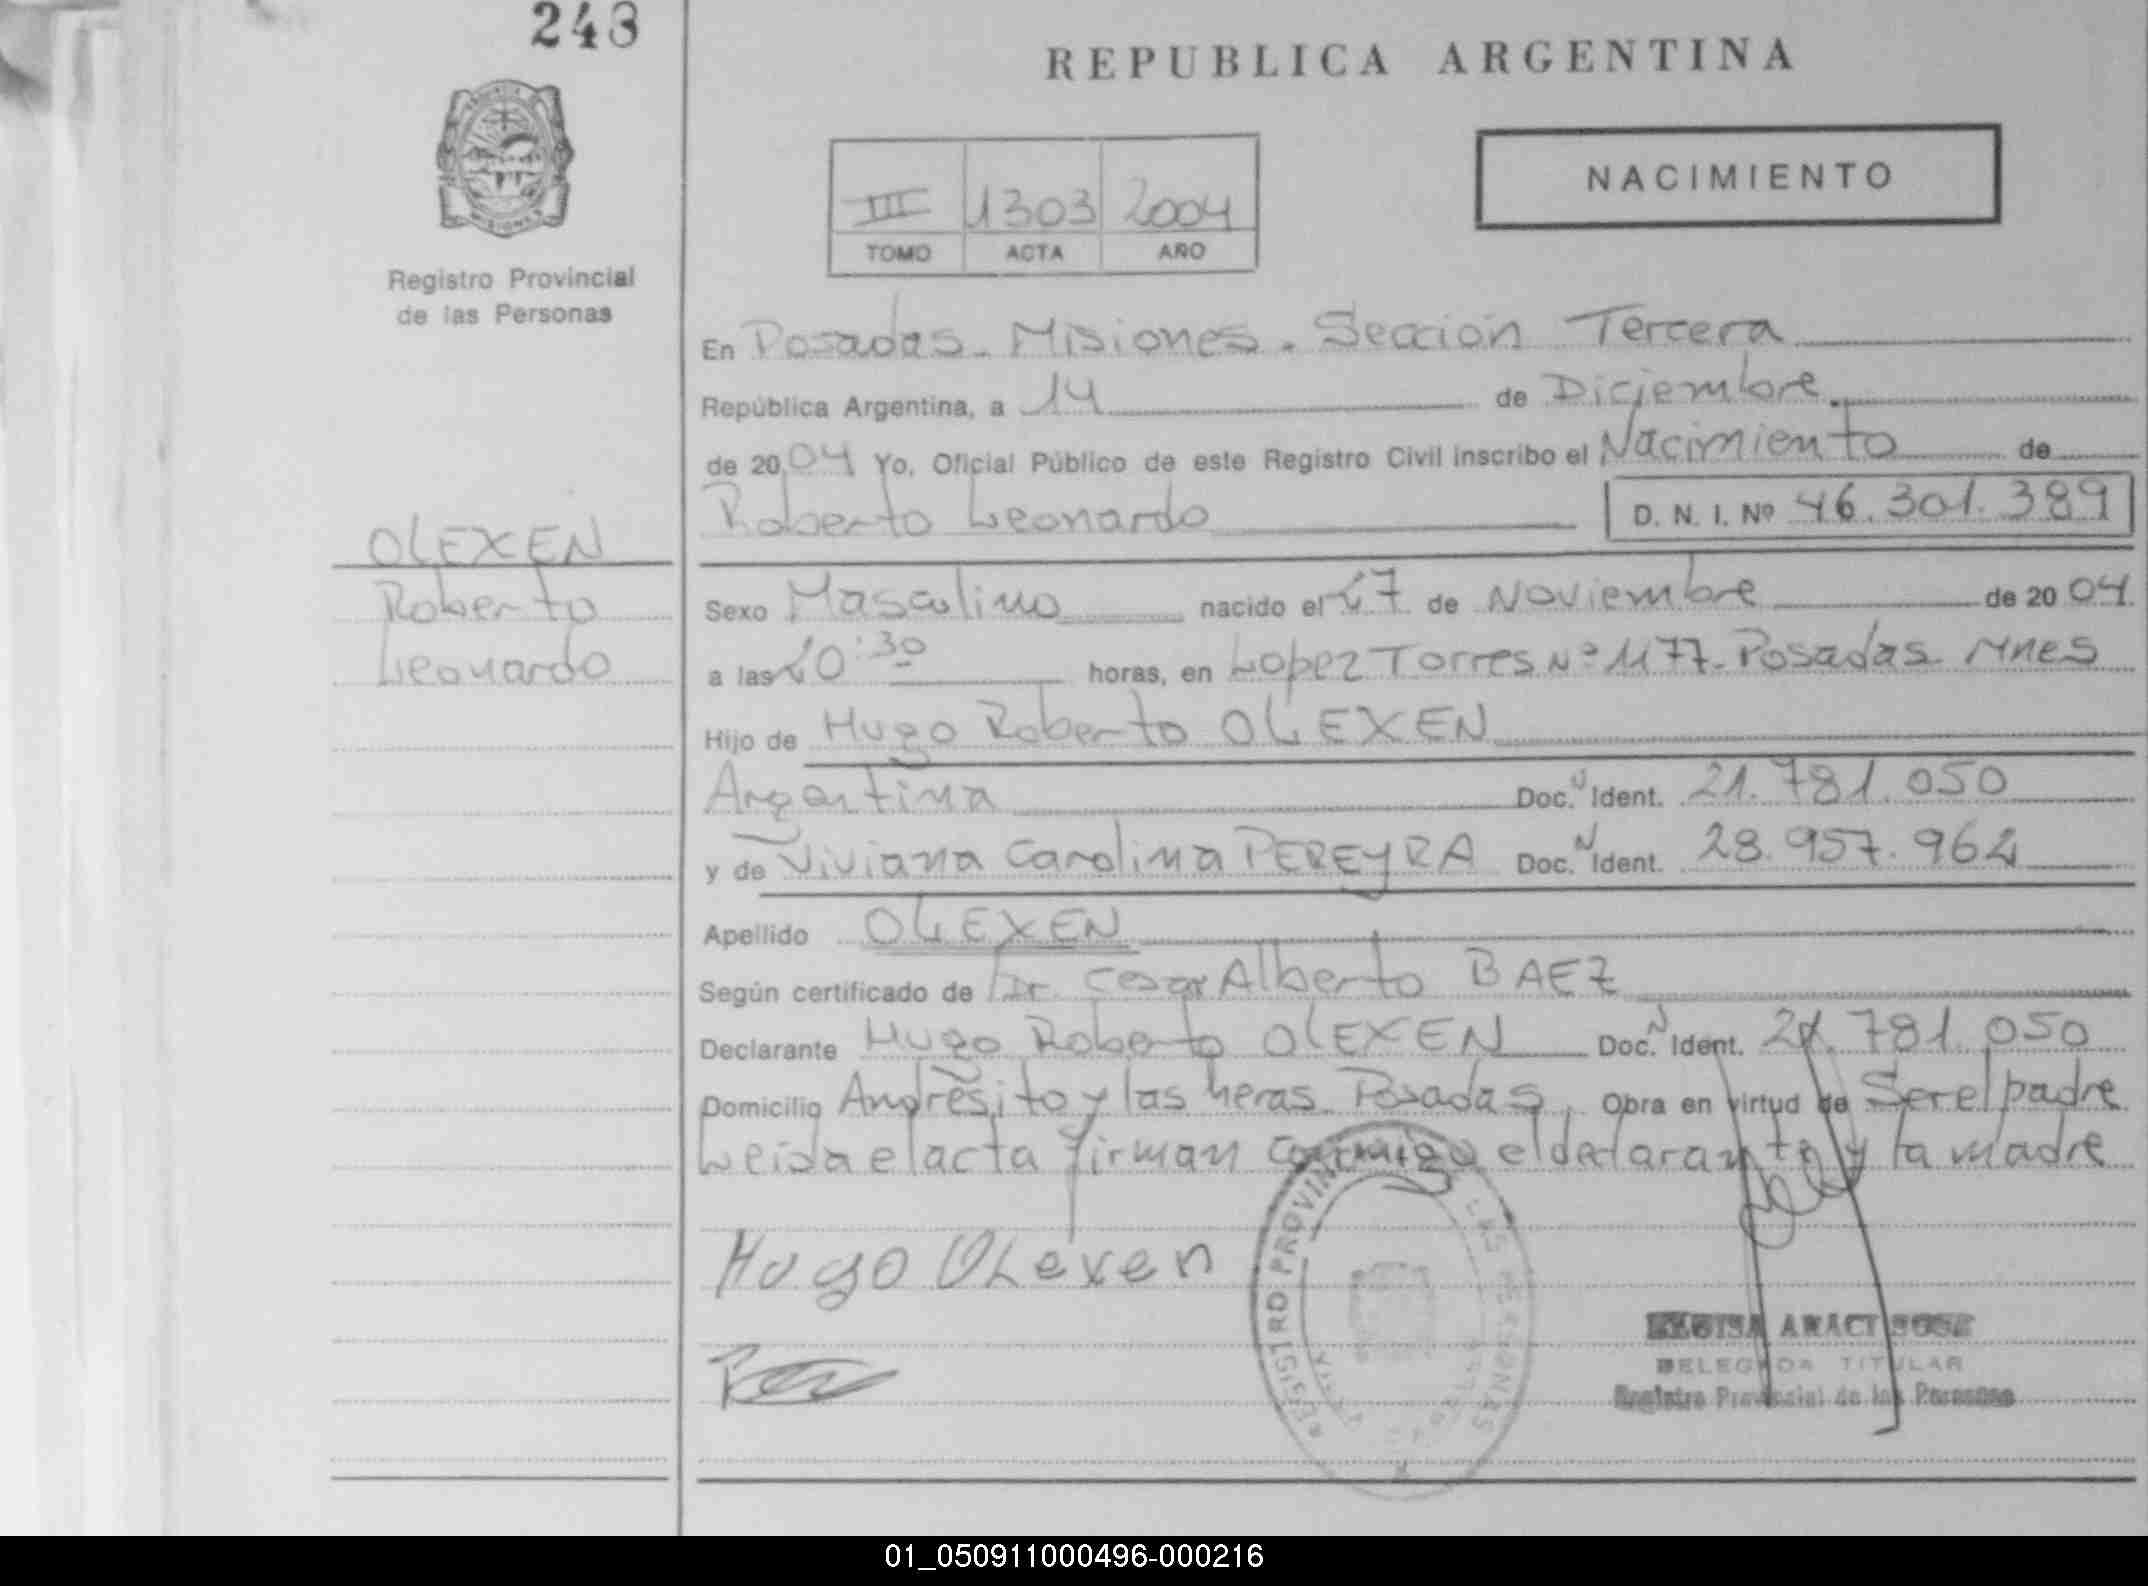 243
REPUBLICA ARGENTINA
NACIMIENTO
III 1303 2004
TOMO ACTA AÑO
MISIONES
Registro Provincial
de las Personas
En Posadas - Misiones. Sección Tercera
República Argentina, a 14 de Diciembre
de 20 04 Yo, Oficial Público de este Registro Civil inscribo el Nacimiento de
Roberto Leonardo D. N. I. Nº 46.301.389
OLEXEN
Roberto
Leonardo
Sexo Masculino nacido el 27 de Noviembre de 20 04
a las 20:30 horas, en Lopez Torres Nº 1177. Posadas Mnes
Hijo de Hugo Roberto OLEXEN
Argentina Doc. N Ident. 21.781.050
y de Viviana Carolina PEREYRA Doc. N Ident. 28.957.962
Apellido OLEXEN
Según certificado de Dr. Cesar Alberto BAEZ
Declarante Hugo Roberto OLEXEN Doc. N Ident. 21.781.050
Domicilio Andresito y las heras Posadas. Obra en virtud de Ser el padre
Leida el acta firman conmigo el declarante y la madre
Hugo OLexen
REGISTRO PROVIN LAS PERSONAS
ARACI JOSE
DELEGADA TITULAR
Registro Provincial de las Personas
01_050911000496-000216